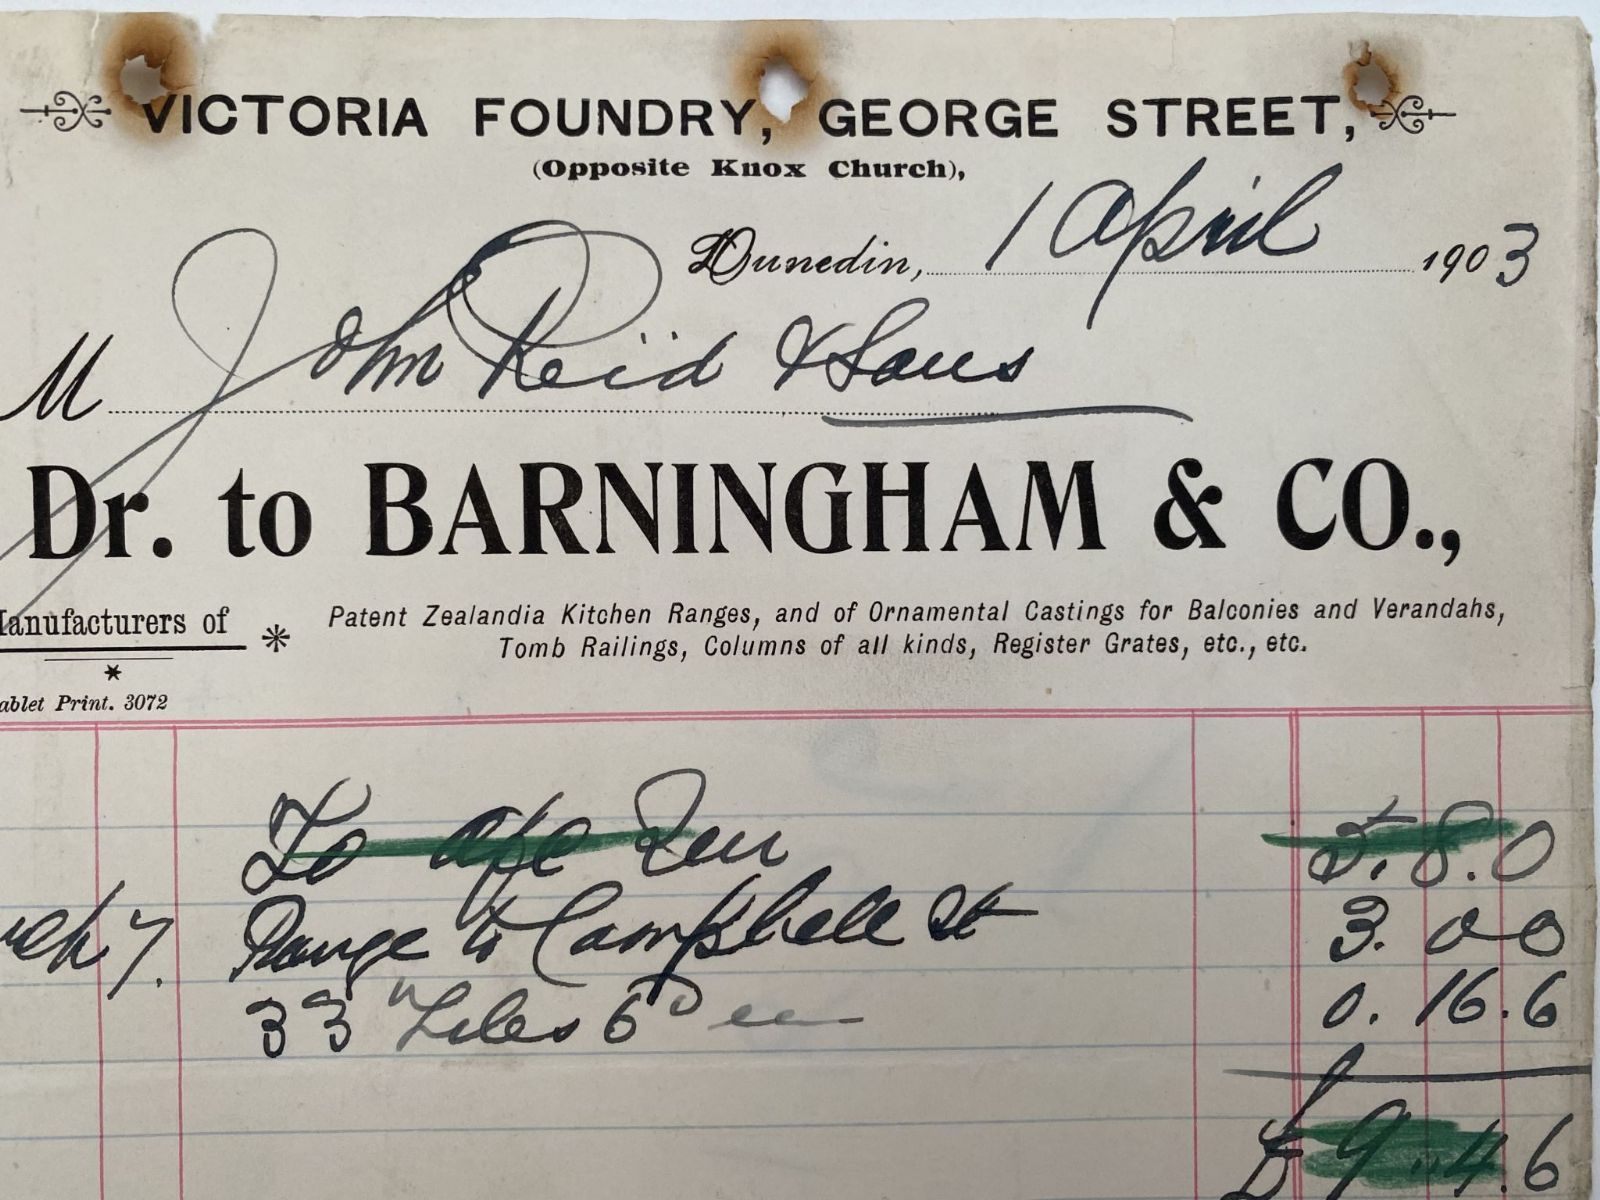 VICTORIA FOUNDRY, GEORGE STREET,
(Opposite Knox Church),
Dunedin, 1 April 1903
M John Reid & Sons
Dr. to BARNINGHAM & CO.,
Manufacturers of * Patent Zealandia Kitchen Ranges, and of Ornamental Castings for Balconies and Verandahs,
Tomb Railings, Columns of all kinds, Register Grates, etc., etc.
*
ablet Print. 3072
To a/c Ren 5. 8. 0
rch 7. Range to Campbell St 3. 0 0
33 Tiles 6D 0. 16. 6
£ 9 " 4. 6